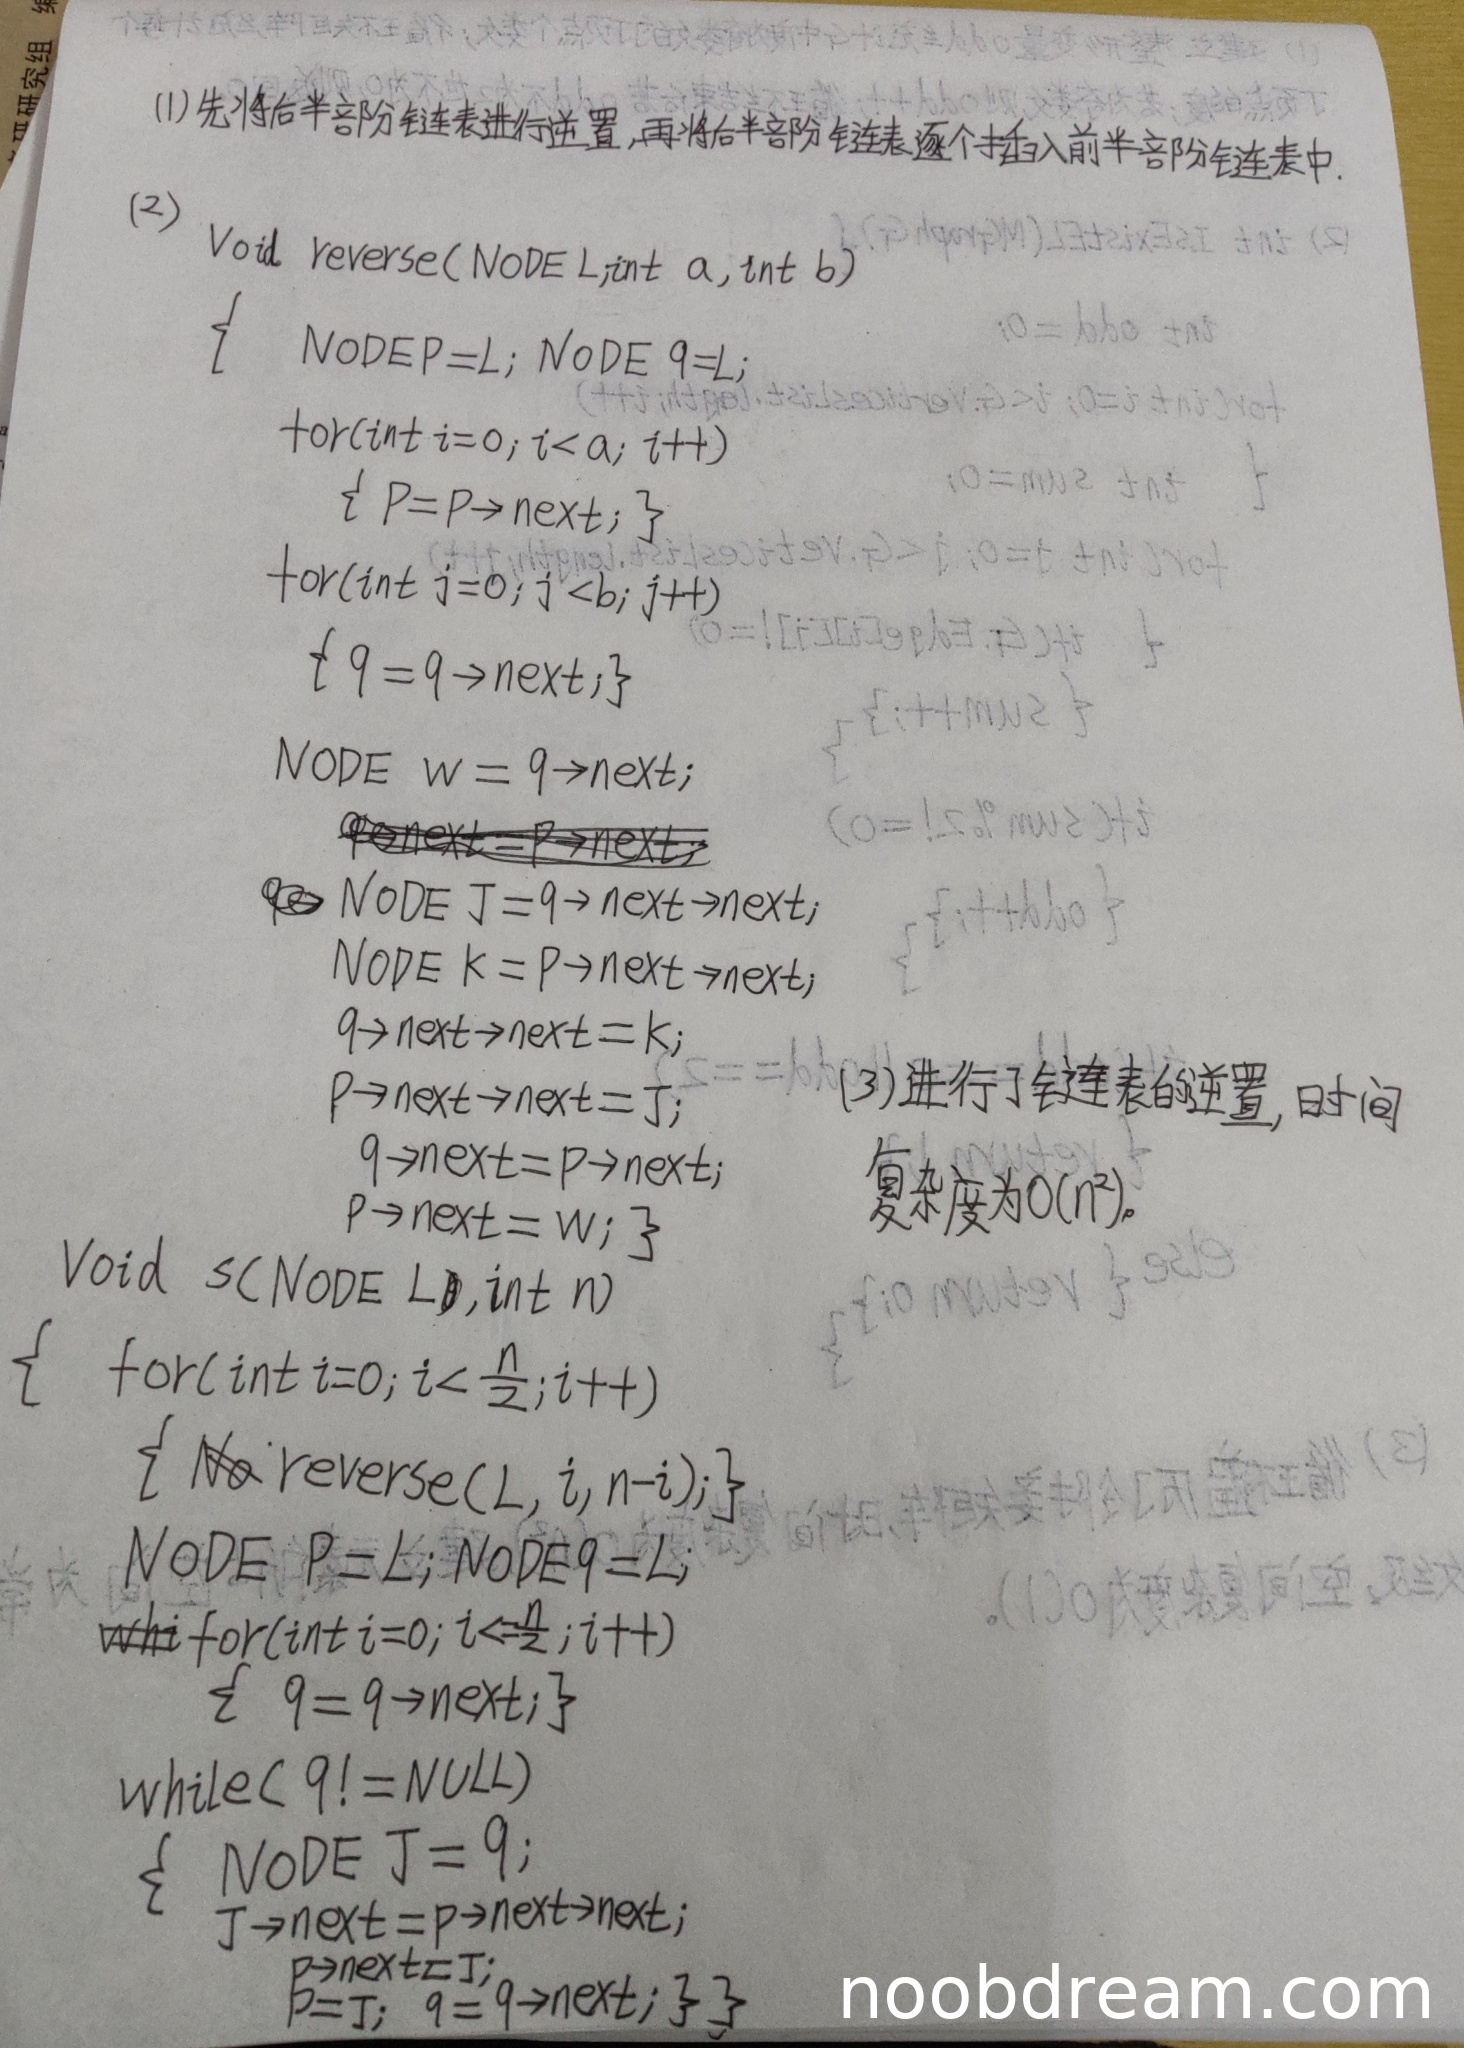 研究组 编
(1)先将后半部分链表进行逆置,再将后半部分链表逐个插入前半部分链表中.
(2)
Void reverse(NODE L,int a,int b)
{ NODE P=L; NODE q=L;
for(int i=0; i<a; i++)
{ P=P→next; }
for(int j=0; j<b; j++)
{ q=q→next; }
NODE w = q→next;
NODE J=q→next→next;
NODE K=P→next→next;
q→next→next=K;
P→next→next=J;
q→next=P→next;
P→next=w; }
(3)进行了链表的逆置,时间
复杂度为O(n²)。
Void s(NODE L,int n)
{ for(int i=0; i<n/2; i++)
{ reverse(L, i, n-i); }
NODE P=L; NODE q=L;
for(int i=0; i<=n/2; i++)
{ q=q→next; }
while(q!=NULL)
{ NODE J=q;
J→next=p→next→next;
p→next=J;
P=J; q=q→next; } }
noobdream.com